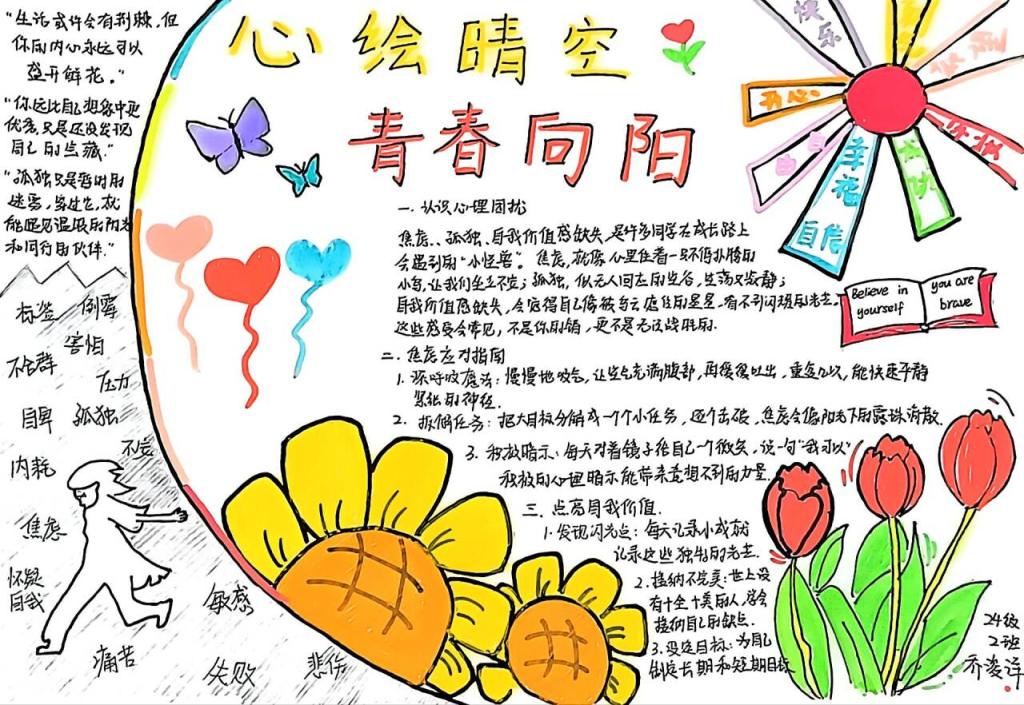 "生活或许会有荆棘,但
你的内心永远可以
盛开鲜花。"
"你远比自己想象中更
优秀,只是还没发现
自己的宝藏."
"孤独只是暂时的
迷雾,穿过它,就
能遇见温暖的阳光
和同行的伙伴."
心绘晴空
青春向阳
快乐
开心
自由
幸福
自信
Believe in
yourself
you are
brave
一.认识心理困扰
焦虑、孤独、自我价值感缺失,是许多同学在成长路上
会遇到的"小怪兽"。焦虑,就像心里住着一只停不下扑腾的
自我价值感缺失,会觉得自己像被乌云遮住的星星,看不到闪耀的光芒.
这些感受会常见,不是你的错,更不是无法战胜的.
二.焦虑应对指南
1.深呼吸魔法:慢慢地吸气,让空气充满腹部,再缓缓吐出,重复几次,能快速平静
紧张的神经.
2.拆解任务:把大目标分解成一个个小任务,逐个击破,焦虑会像阳光下的露珠消散.
3.积极暗示:每天对着镜子给自己一个微笑,说一句"我可以"
积极的心理暗示能带来意想不到的力量.
三.点亮自我价值.
1.发现闪光点:每天记录小成就
记录这些独特的光芒.
2.接纳不完美:世上没
有十全十美的人,学会
接纳自己的缺点.
3.设定目标:为自己
制定长期和短期目标
标签
倒霉
害怕
不合群
压力
自卑
孤独
内耗
焦虑
怀疑
自我
敏感
痛苦
失败
悲伤
24级
2班